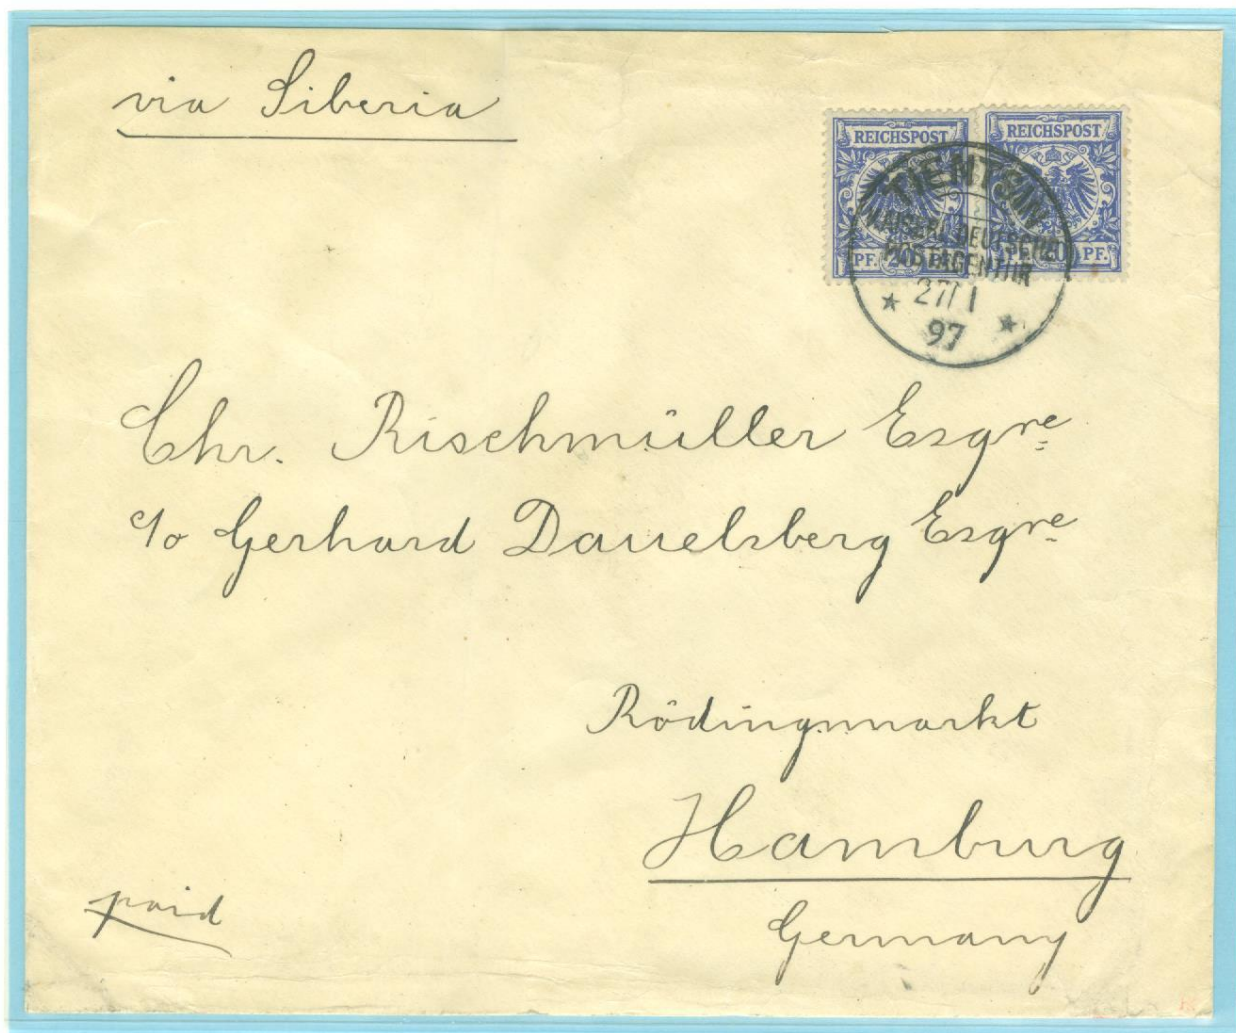 via Siberia
REICHSPOST REICHSPOST
TIENTSIN
KAISERL. DEUTSCHE
POSTAGENTUR
PF. 20 PF. PF. 20 PF.
27/1
97
Chr. Rischmüller Esqre
c/o Gerhard Dauelsberg Esqre
Rödingsmarkt
Hamburg
Germany
paid